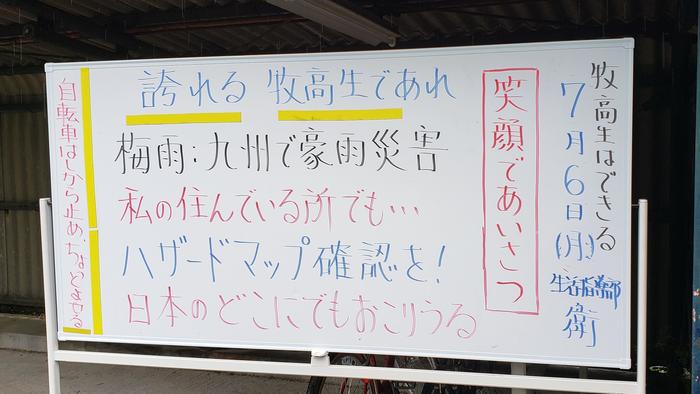 牧高生はできる
7月6日(月)
生活指導部
衛
笑顔であいさつ
誇れる 牧高生であれ
梅雨:九州で豪雨災害
私の住んでいる所でも…
ハザードマップ確認を!
日本のどこにでもおこりうる
自転車はしから止め、ちょっとよせる